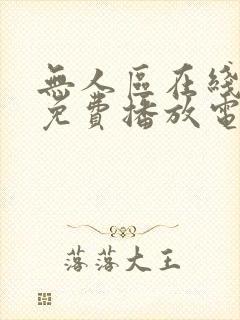 無人區在綫
免費播放電
落落大王